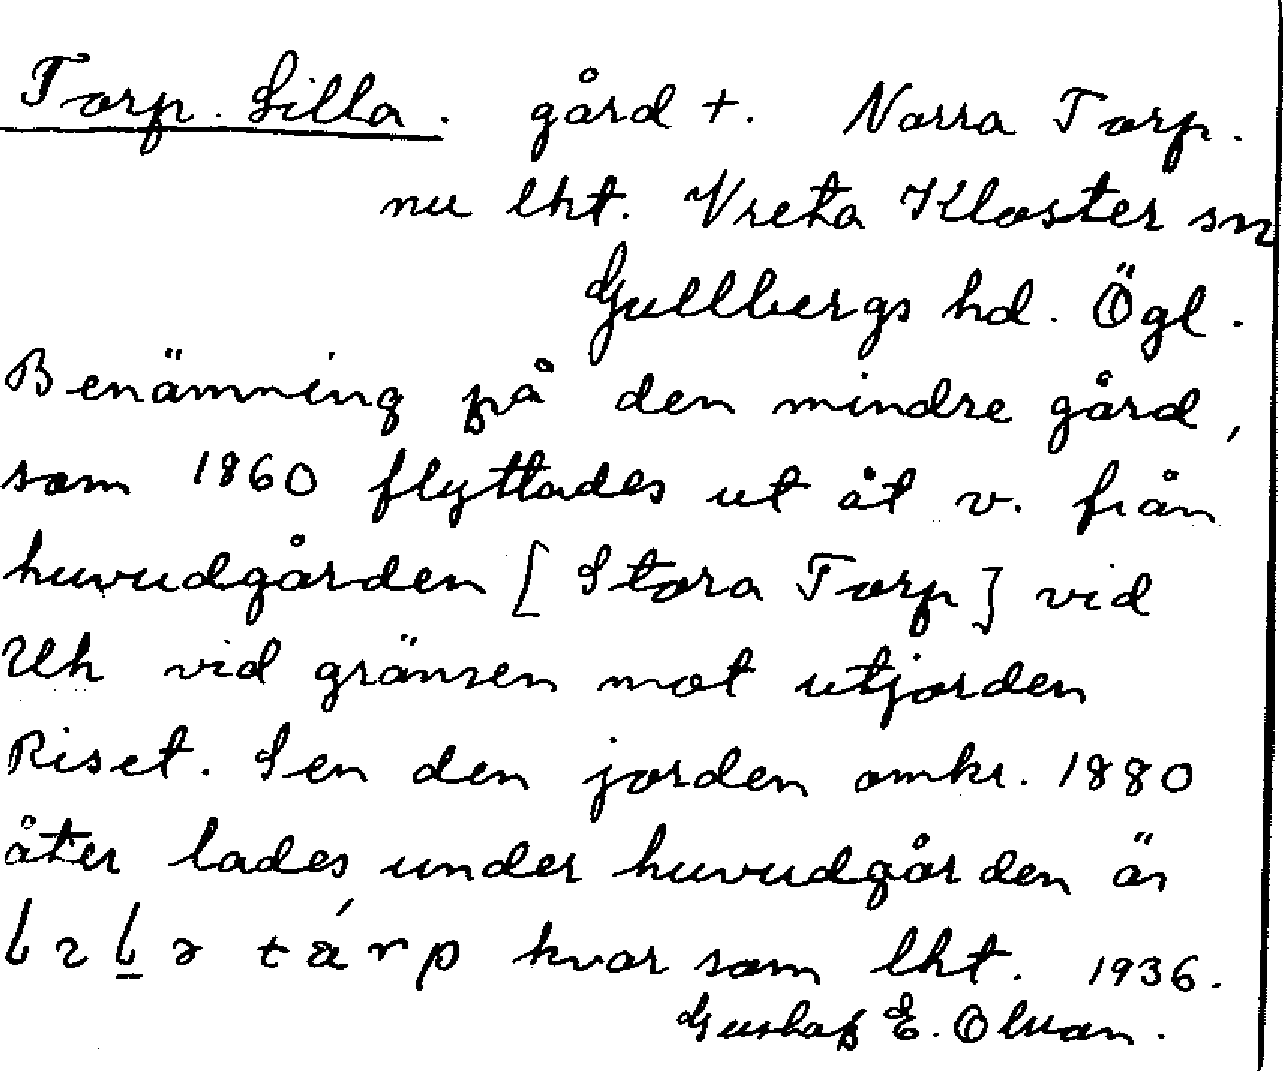 Torp. Lilla. gård +. Norra Torp.
nu lht. Vreta Kloster sn
Gullbergs hd. Ögl.
Benämning på den mindre gård,
som 1860 flyttades ut åt v. från
huvudgården [Stora Torp] vid
Uh vid gränsen mot utjorden
Riset. Sen den jorden omkr. 1880
åter lades under huvudgården är
kvar som lht. 1936.
Gustaf E. Olsson.